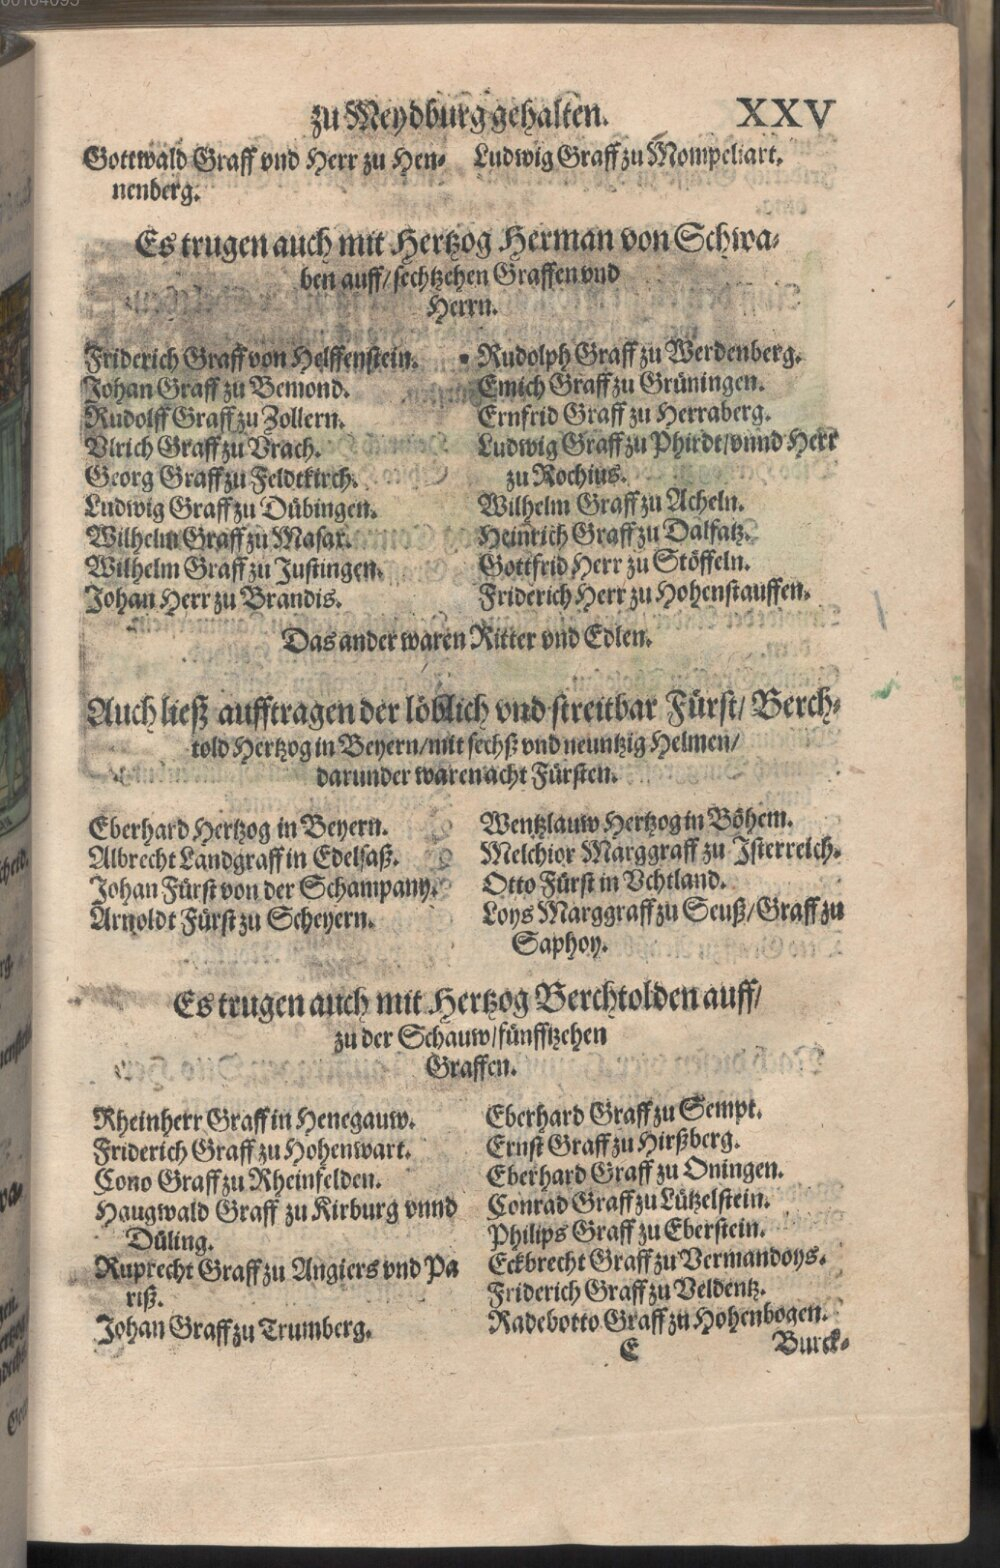 zu Meydburg gehalten. XXV
Gottwald Graff vnd Herr zu Hen-
nenberg.
Ludwig Graff zu Mompeliart.
Es trugen auch mit Hertzog Herman von Schwa-
ben auff/ sechtzehen Graffen vnd
Herrn.
Friderich Graff von Helffenstein.
Johan Graff zu Bemond.
Rudolff Graff zu Zollern.
Vlrich Graff zu Vrach.
Georg Graff zu Feldtkirch.
Ludwig Graff zu Dübingen.
Wilhelm Graff zu Masar.
Wilhelm Graff zu Justingen.
Johan Herr zu Brandis.
Rudolph Graff zu Werdenberg.
Emich Graff zu Grüningen.
Ernfrid Graff zu Herraberg.
Ludwig Graff zu Phirdt/ vnnd Herr
zu Rochius.
Wilhelm Graff zu Acheln.
Heinrich Graff zu Dalfatz.
Gottfrid Herr zu Stöffeln.
Friderich Herr zu Hohenstauffen.
Das ander waren Ritter vnd Edlen.
Auch ließ aufftragen der löblich vnd streitbar Fürst/ Berch-
told Hertzog in Beyern/ mit sechß vnd neuntzig Helmen/
darunder waren acht Fürsten.
Eberhard Hertzog in Beyern.
Albrecht Landgraff in Edelsaß.
Johan Fürst von der Schampany.
Arnoldt Fürst zu Scheyern.
Wentzlauw Hertzog in Böhem.
Melchior Marggraff zu Isterreich.
Otto Fürst in Vchtland.
Loys Marggraff zu Seuß/ Graff zu
Saphoy.
Es trugen auch mit Hertzog Berchtolden auff/
zu der Schauw/ fünfftzehen
Graffen.
Rheinherr Graff in Henegauw.
Friderich Graff zu Hohenwart.
Cono Graff zu Rheinfelden.
Haugwald Graff zu Kirburg vnnd
Düling.
Ruprecht Graff zu Angiers vnd Pa
riß.
Johan Graff zu Trumberg.
Eberhard Graff zu Sempt.
Ernst Graff zu Hirßberg.
Eberhard Graff zu Oningen.
Conrad Graff zu Lützelstein.
Philips Graff zu Eberstein.
Eckbrecht Graff zu Vermandoys.
Friderich Graff zu Veldentz.
Radebotto Graff zu Hohenbogen.
E Burck-